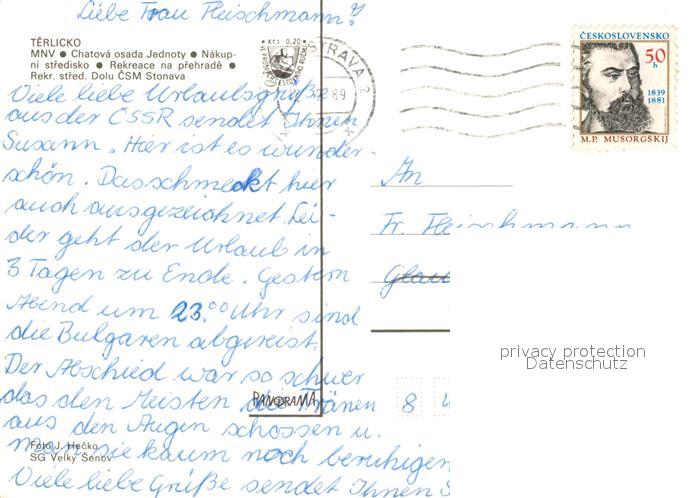 Liebe Frau Fleischmann!
TĚRLICKO
MNV ● Chatová osada Jednoty ● Nákup-
ní středisko ● Rekreace na přehradě ●
Rekr. střed. Dolu ČSM Stonava
Kčs 0,20
OSTRAVA 2
89
ČESKOSLOVENSKO
50 h
1839
1881
M.P. MUSORGSKIJ
Viele liebe Urlaubsgrüße
aus der ČSSR sendet Ihnen
Susann. Hier ist es wunder-
schön. Das schmeckt hier
auch ausgezeichnet. Lei-
der geht der Urlaub in
3 Tagen zu Ende. Gestern
Abend um 23.00 Uhr sind
die Bulgaren abgereist.
Der Abschied war so schwer
das den Meisten die Tränen
aus den Augen schossen u.
sie kaum noch beruhigen
Viele liebe Grüße sendet Ihnen S
An
Fr. Fleischmann
Glau
8 4
PANORAMA
Foto J. Hečko
SG Velký Šenov
privacy protection
Datenschutz